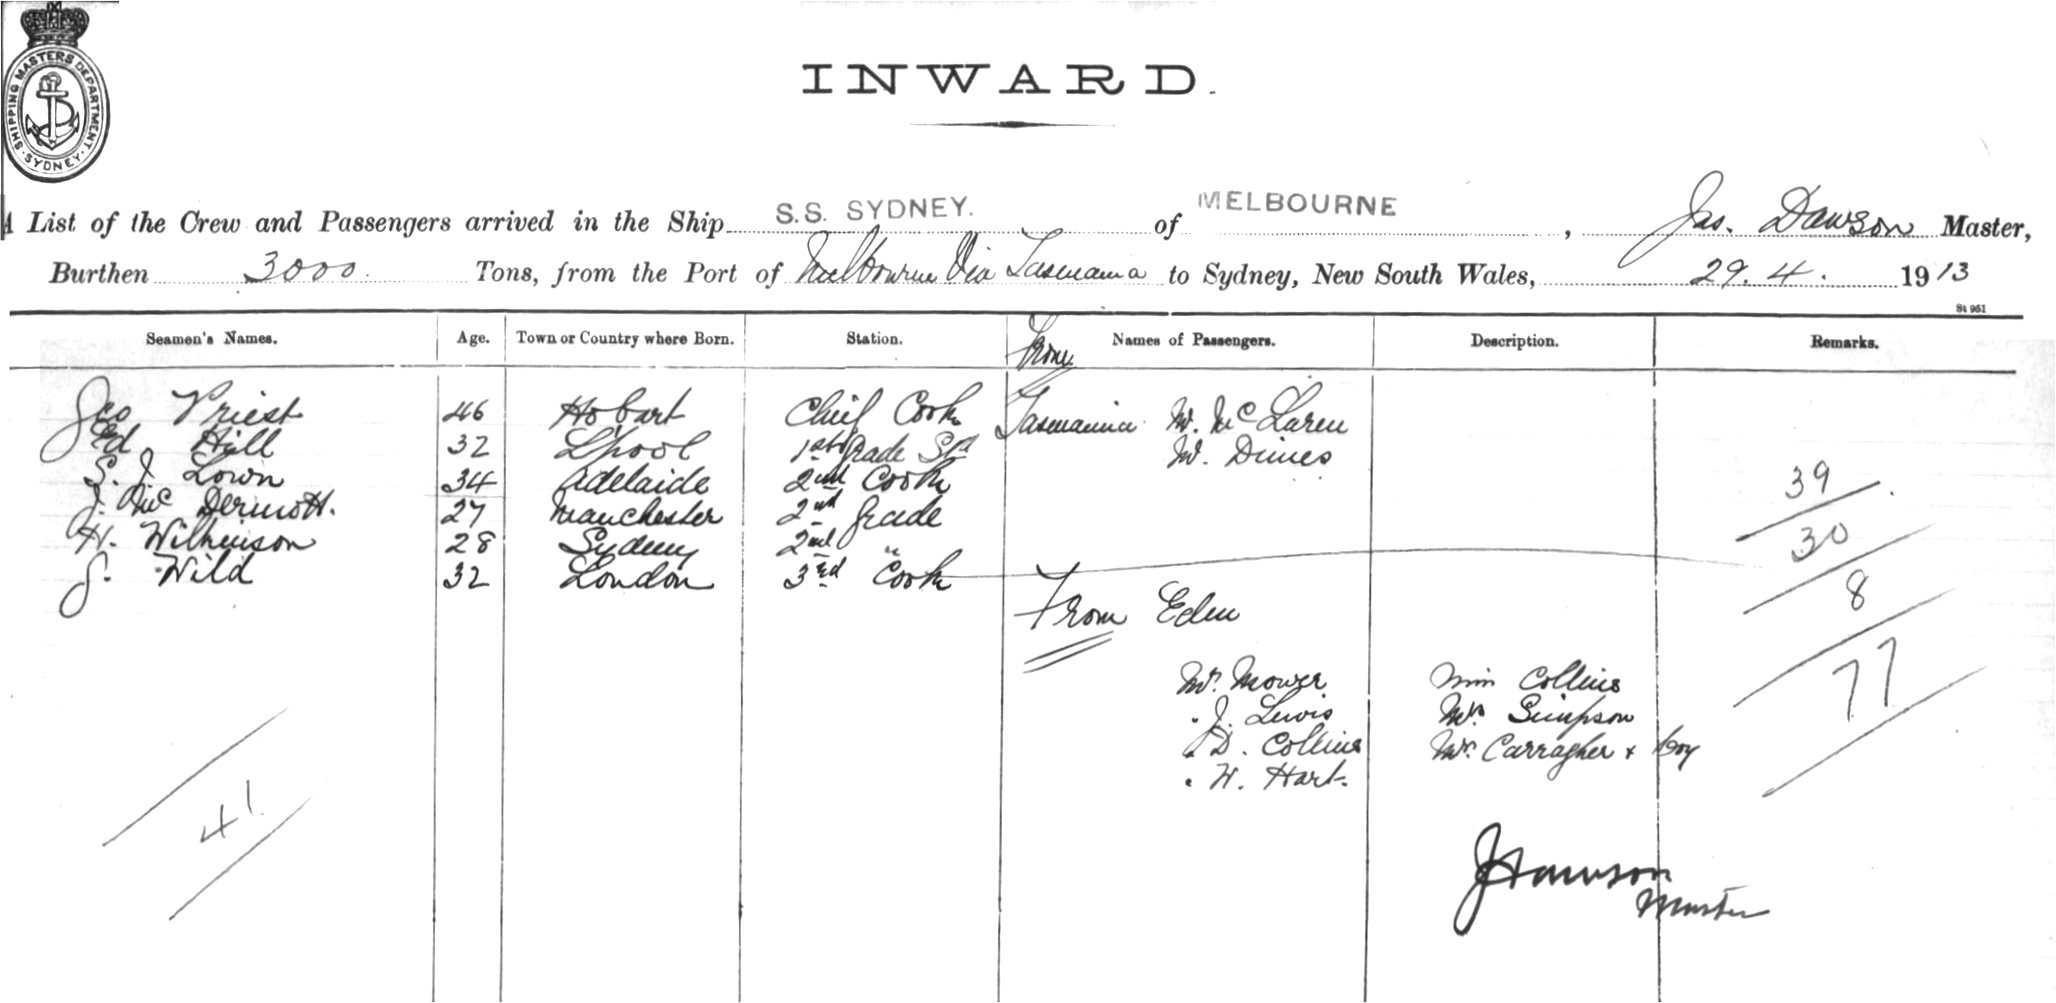 SHIPPING MASTERS DEPARTMENT · SYDNEY ·
INWARD.
A List of the Crew and Passengers arrived in the Ship S.S. SYDNEY. of MELBOURNE, Jas. Dawson Master,
Burthen 3000 Tons, from the Port of Melbourne Via Tasmania to Sydney, New South Wales, 29.4. 1913
St 951
Seamen's Names. Age. Town or Country where Born. Station. Names of Passengers. Description. Remarks.
From
Geo Priest 46 Hobart Chief Cook Tasmania Mr. McLaren
Ed Hill 32 Lpool 1st Grade Mr. Dimes
S. J. Lown 34 Adelaide 2nd Cook 39
J. McDermott. 27 Manchester 2nd Grade
H. Wilkinson 28 Sydney 2nd " 30
J. Wild 32 London 3rd Cook
From Eden 8
Mr. Mower Miss Collins 77
. J. Lewis Mrs Simpson
. D. Collins Mrs. Carragher + boy
. W. Hart.
41
J Dawson
Master